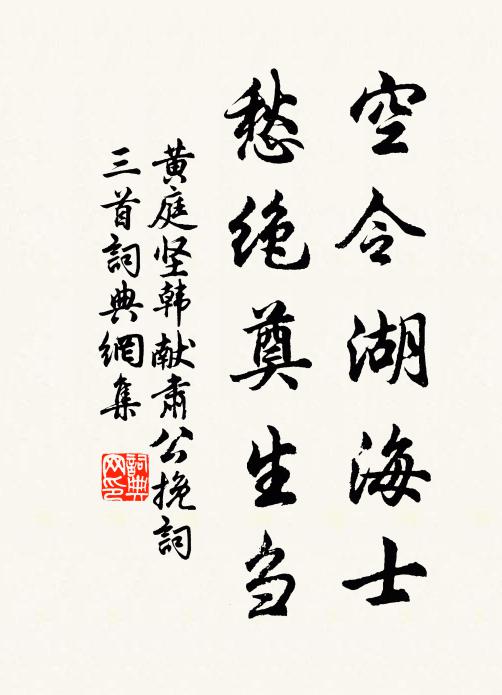 空令湖海士
愁绝奠生刍
黄庭坚韩献肃公挽詞
三首詞典網集
詞典网印